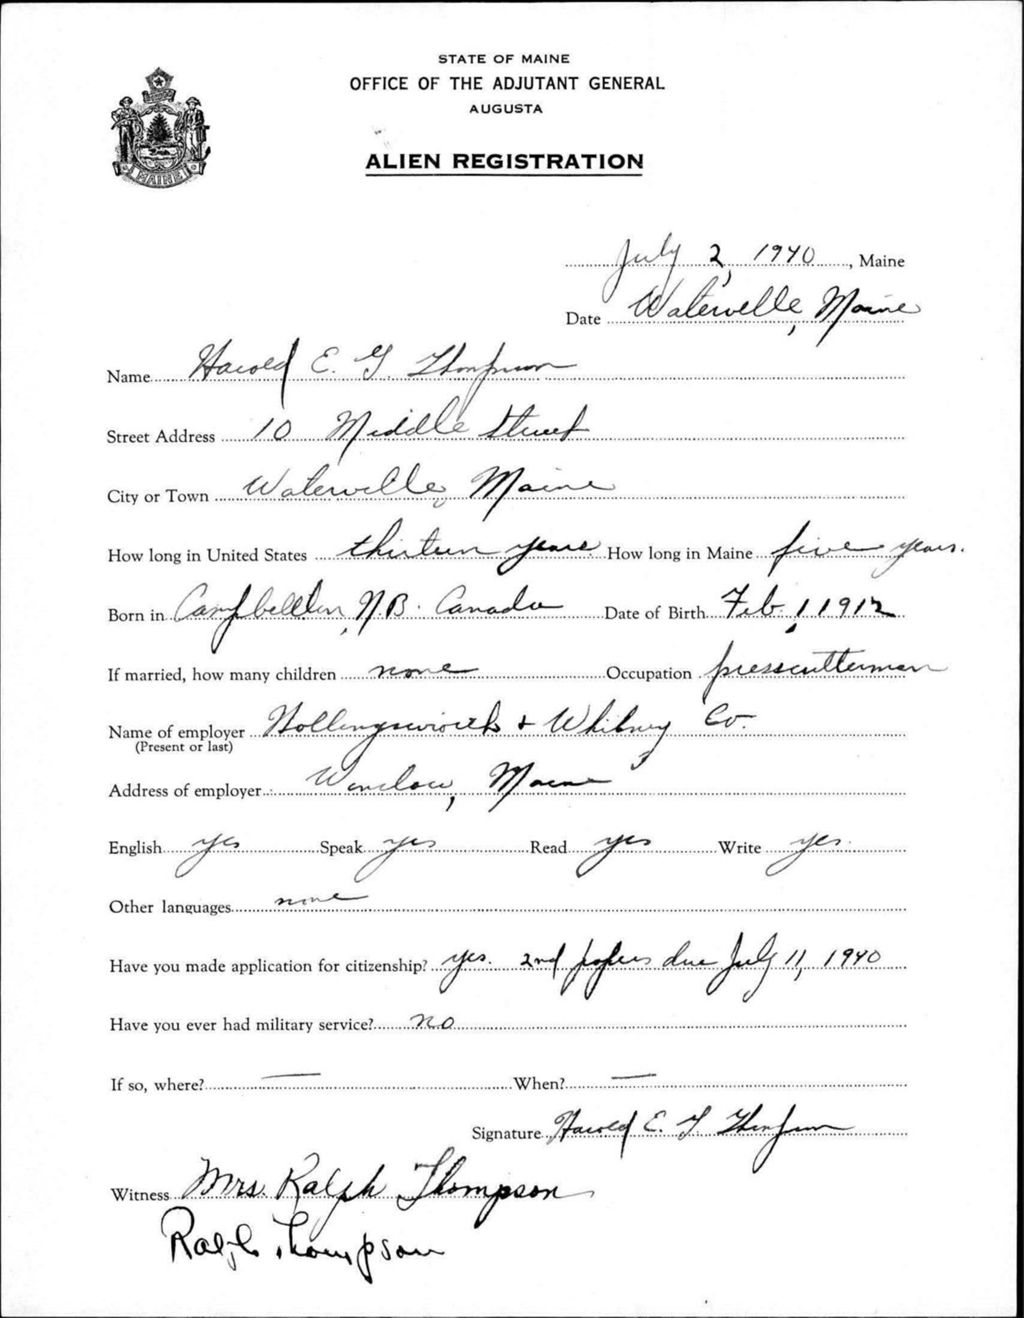 STATE OF MAINE
OFFICE OF THE ADJUTANT GENERAL
AUGUSTA
ALIEN REGISTRATION
MAINE
July 2, 1940, Maine
Date Waterville, Maine
Name Harold E. G. Thompson
Street Address 10 Middle Street
City or Town Waterville, Maine
How long in United States thirteen years How long in Maine five years.
Born in Campbellton, N.B. Canada Date of Birth Feb. 1, 1912
If married, how many children none Occupation presscutterman
Name of employer Hollingsworth + Whitney Co.
(Present or last)
Address of employer Winslow, Maine
English yes Speak yes Read yes Write yes.
Other languages none
Have you made application for citizenship? yes. 2nd papers due July 11, 1940
Have you ever had military service? no
If so, where? — When? —
Signature Harold E. G Thompson
Witness Mrs. Ralph Thompson
Ralph Thompson